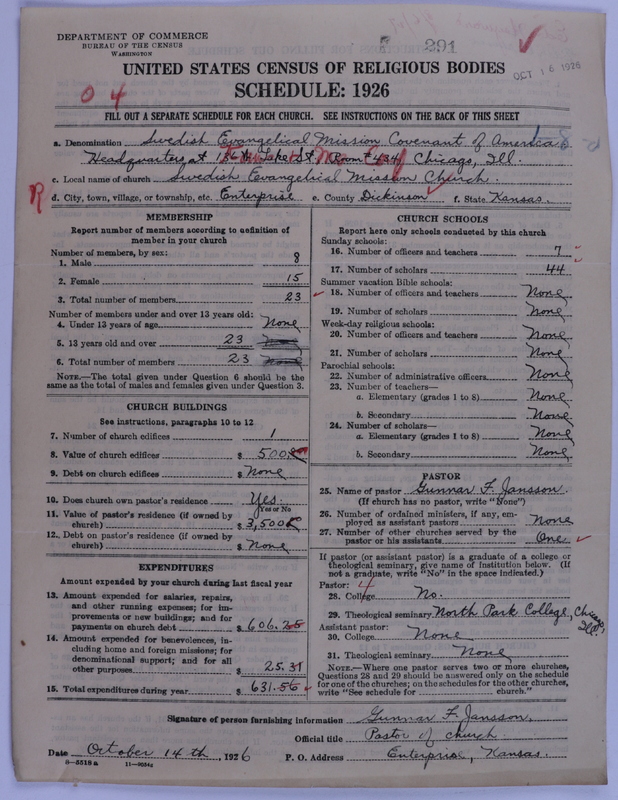 DEPARTMENT OF COMMERCE
BUREAU OF THE CENSUS
WASHINGTON
291
OCT 16 1926
UNITED STATES CENSUS OF RELIGIOUS BODIES
SCHEDULE: 1926
0 4
FILL OUT A SEPARATE SCHEDULE FOR EACH CHURCH. SEE INSTRUCTIONS ON THE BACK OF THIS SHEET
a. Denomination Swedish Evangelical Mission Covenant of America
Headquarters at Lake St. Room 434, Chicago, Ill.
c. Local name of church Swedish Evangelical Mission Church.
R
d. City, town, village, or township, etc. Enterprise e. County Dickinson f. State Kansas.
MEMBERSHIP
Report number of members according to definition of
member in your church
Number of members, by sex:
1. Male 8
2. Female 15
3. Total number of members 23
Number of members under and over 13 years old:
4. Under 13 years of age None
5. 13 years old and over 23 None
6. Total number of members 23 None
NOTE.—The total given under Question 6 should be the
same as the total of males and females given under Question 3.
CHURCH BUILDINGS
See instructions, paragraphs 10 to 12
7. Number of church edifices 1
8. Value of church edifices $ 500
9. Debt on church edifices $ None
10. Does church own pastor's residence Yes.
Yes or No
11. Value of pastor's residence (if owned by
church) $ 3,500
12. Debt on pastor's residence (if owned by
church) $ None
EXPENDITURES
Amount expended by your church during last fiscal year
13. Amount expended for salaries, repairs,
and other running expenses; for im-
provements or new buildings; and for
payments on church debt $ 606.25
14. Amount expended for benevolences, in-
cluding home and foreign missions; for
denominational support; and for all
other purposes $ 25.31
15. Total expenditures during year $ 631.56
CHURCH SCHOOLS
Report here only schools conducted by this church
Sunday schools:
16. Number of officers and teachers 7
17. Number of scholars 44
Summer vacation Bible schools:
18. Number of officers and teachers None
19. Number of scholars None
Week-day religious schools:
20. Number of officers and teachers None
21. Number of scholars None
Parochial schools:
22. Number of administrative officers None
23. Number of teachers—
a. Elementary (grades 1 to 8) None
b. Secondary None
24. Number of scholars—
a. Elementary (grades 1 to 8) None
b. Secondary None
PASTOR
25. Name of pastor Gunnar F. Jansson.
(If church has no pastor, write "None")
26. Number of ordained ministers, if any, em-
ployed as assistant pastors None
27. Number of other churches served by the
pastor or his assistants One
If pastor (or assistant pastor) is a graduate of a college or
theological seminary, give name of institution below. (If
not a graduate, write "No" in the space indicated.)
Pastor: 4
28. College No.
29. Theological seminary North Park College, Chicago, Ill.
Assistant pastor:
30. College None
31. Theological seminary None
NOTE.—Where one pastor serves two or more churches,
Questions 28 and 29 should be answered only on the schedule
for one of the churches; on the schedules for the other churches,
write "See schedule for church."
Signature of person furnishing information Gunnar F. Jansson,
Official title Pastor of church.
Date October 14th, 1926 P. O. Address Enterprise, Kansas.
8-5518a 11-9034a